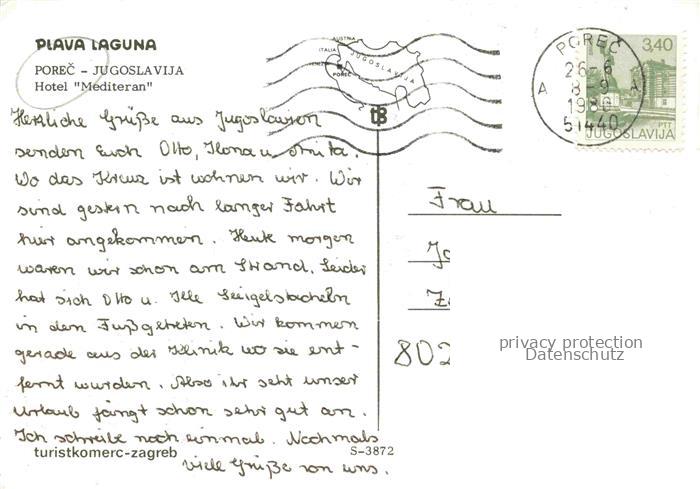 PLAVA LAGUNA
POREČ – JUGOSLAVIJA
Hotel "Mediteran"
Herzliche Grüße aus Jugoslawien
senden Euch Otto, Ilona u. Anita.
Wo das Kreuz ist wohnen wir. Wir
sind gestern nach langer Fahrt
hier angekommen. Heute morgen
waren wir schon am Strand. Leider
hat sich Otto u. Ille Seeigelstacheln
in den Fuß getreten. Wir kommen
gerade aus der Klinik wo sie ent-
fernt wurden. Also ihr seht unser
Urlaub fängt schon sehr gut an.
Ich schreibe noch einmal. Nochmals
viele Grüße von uns.
turistkomerc-zagreb
S-3872
AUSTRIA
ITALIA
JUGOSLAVIJA
POREČ
POREČ
26-6
A 8-9 A
1980
51440
3,40
PTT
JUGOSLAVIJA
Frau
802
privacy protection
Datenschutz